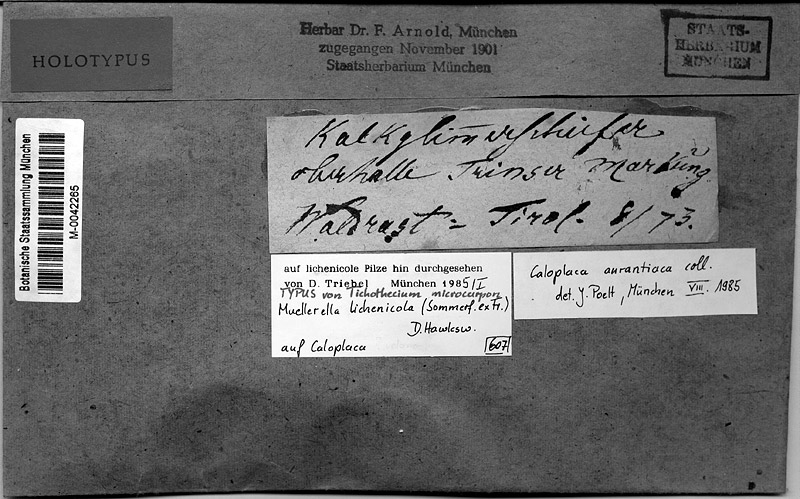 HOLOTYPUS
Herbar Dr. F. Arnold, München
zugegangen November 1901
Staatsherbarium München
STAATS-
HERBARIUM
MÜNCHEN
Botanische Staatssammlung München
M-0042265
Kalkglimerschiefer
oberhalb Trinser Markung
Waldrast - Tirol. 8/73.
auf lichenicole Pilze hin durchgesehen
von D. Triebel München 1985/I
TYPUS von Tichothecium microcarpon
Muellerella lichenicola (Sommerf. ex Fr.)
D. Hawksw.
auf Caloplaca
607
Caloplaca aurantiaca coll.
det. J. Poelt, München VIII. 1985